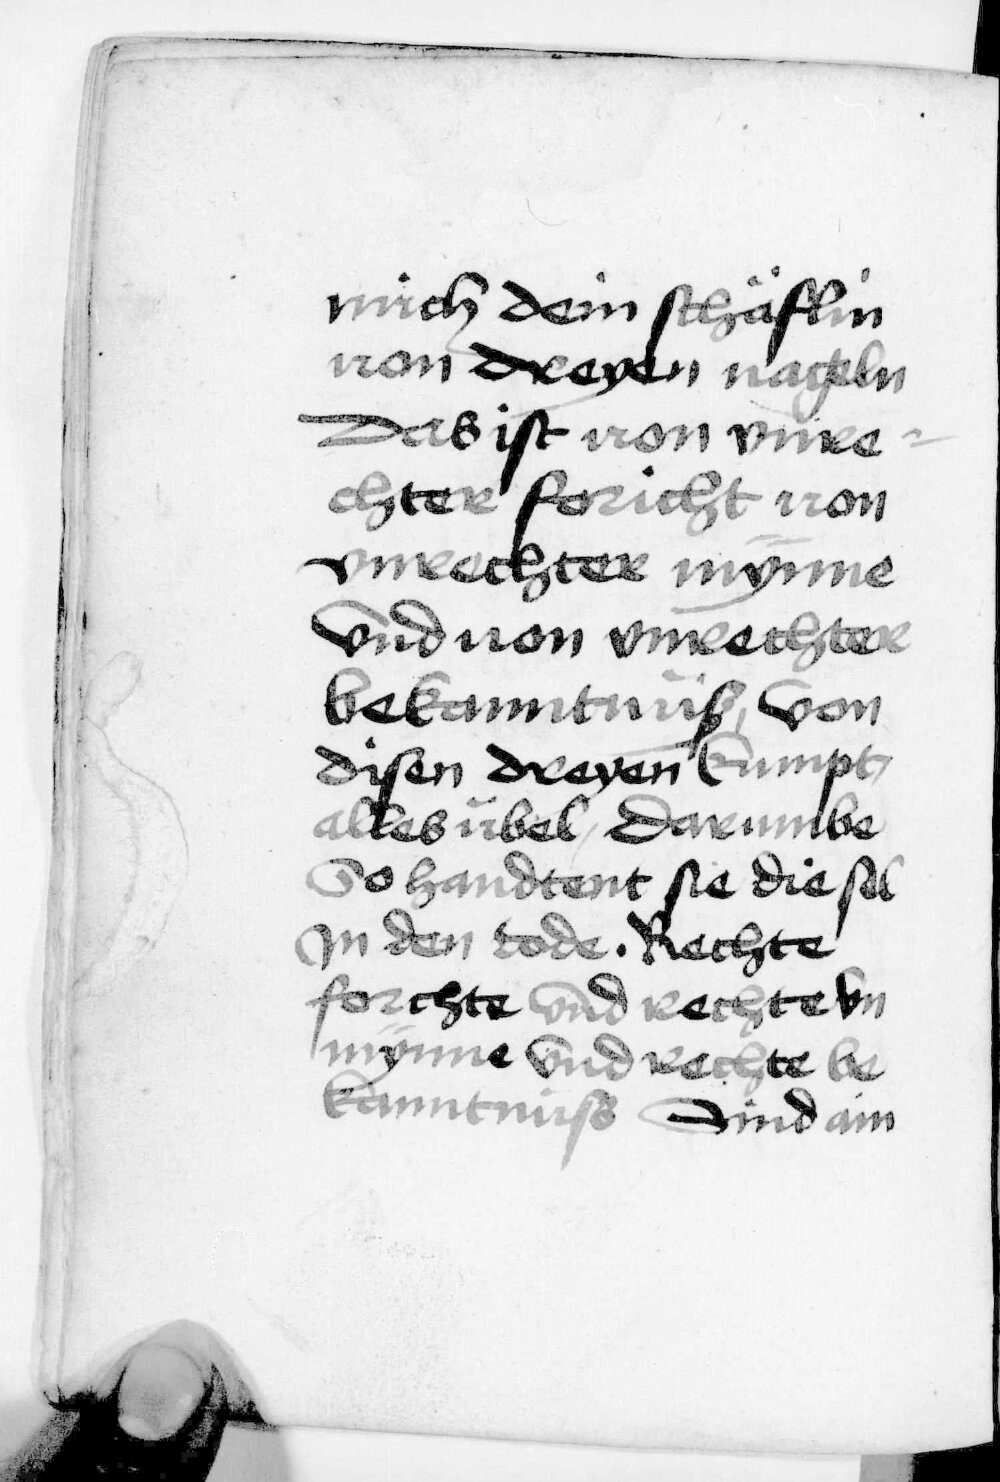 mich dein schäflin
von dreyen nageln
Das ist von vnre-
chter foricht von
vnrechter mÿnne
vnd von vnrechter
bekanntnüß, von
disen dreyen kumpt
alles übel, Darumbe
So handtent sie die sel
In den tode. Rechte
forchte vnd rechte vn
mÿnne vnd rechte be
kanntnuß Sind ain